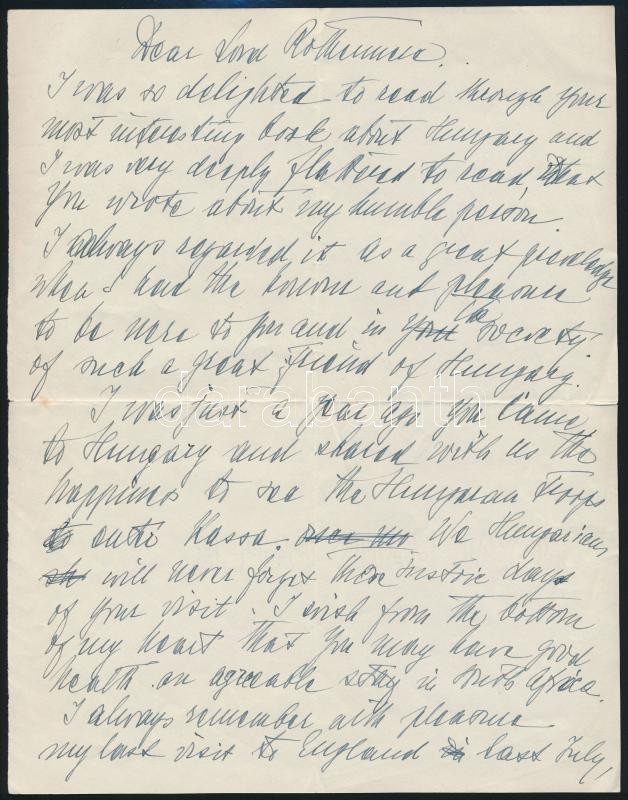 Dear Lord Rothermere.
I was so delighted to read through your
most interesting book about Hungary and
I was very deeply flattered to read, that
you wrote about my humble person.
I always regarded it as a great priviledge
when I had the honour and pleasure
to be near to you and in the society
of such a great Friend of Hungary.
I was just a year ago you came
to Hungary and shared with us the
happiness to see the Hungarian Troops
to enter Kassa. We Hungarians
will never forget these historic days
of your visit. I wish from the bottom
of my heart that you may have good
health an agreeable stay in South Africa.
I always remember with pleasure
my last visit to England last July,
darabanth